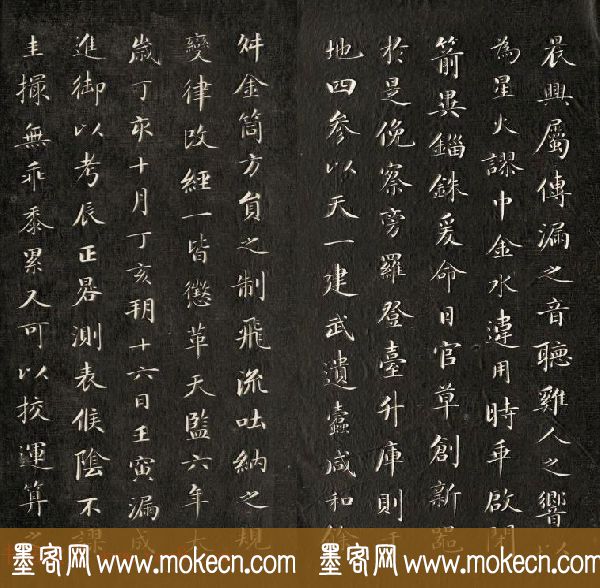 晨興屬傳漏之音聽雞人之響以
為星火謬中金水違用時乖啟閉
箭異錙銖爰命日官草創新器
於是俛察旁羅登臺升庫則于
地四參以天一建武遺蠹咸和餘
舛金筒方員之制飛流吐納之規
變律改經一皆懲革天監六年太
歲丁亥十月丁亥朔十六日壬寅漏成
進御以考辰正晷測表候陰不謬
圭撮無乖黍累又可以挍運算之
墨客网 www.mokecn.com
墨客网 www.mokecn.com